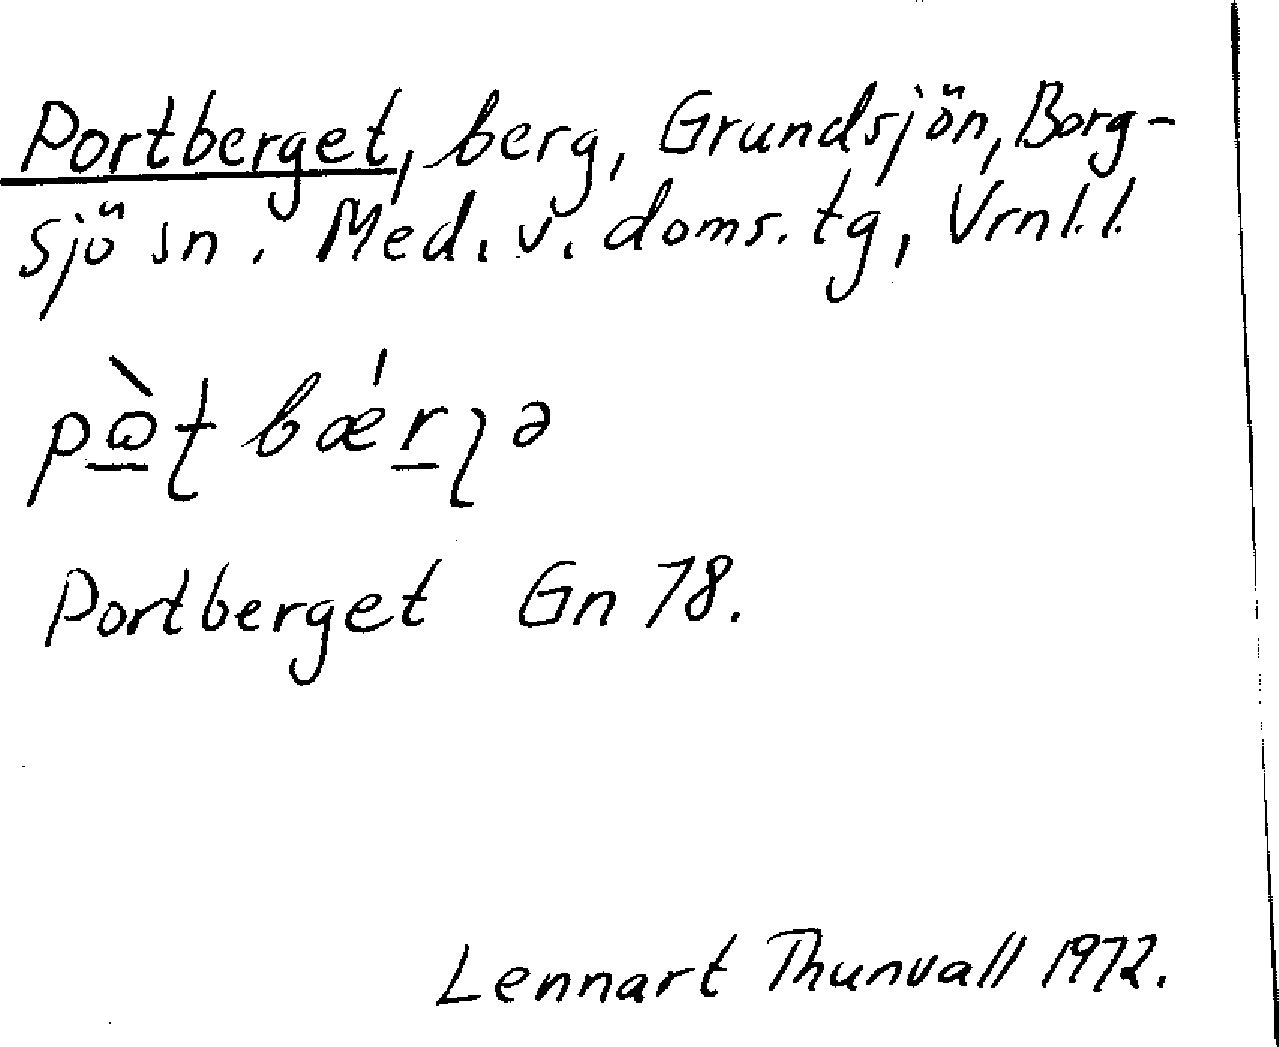 Portberget, berg, Grundsjön, Borg-
sjö sn. Med. v. doms. tg, Vrnl.l.
Portberget Gn 78.
Lennart Thunvall 1972.